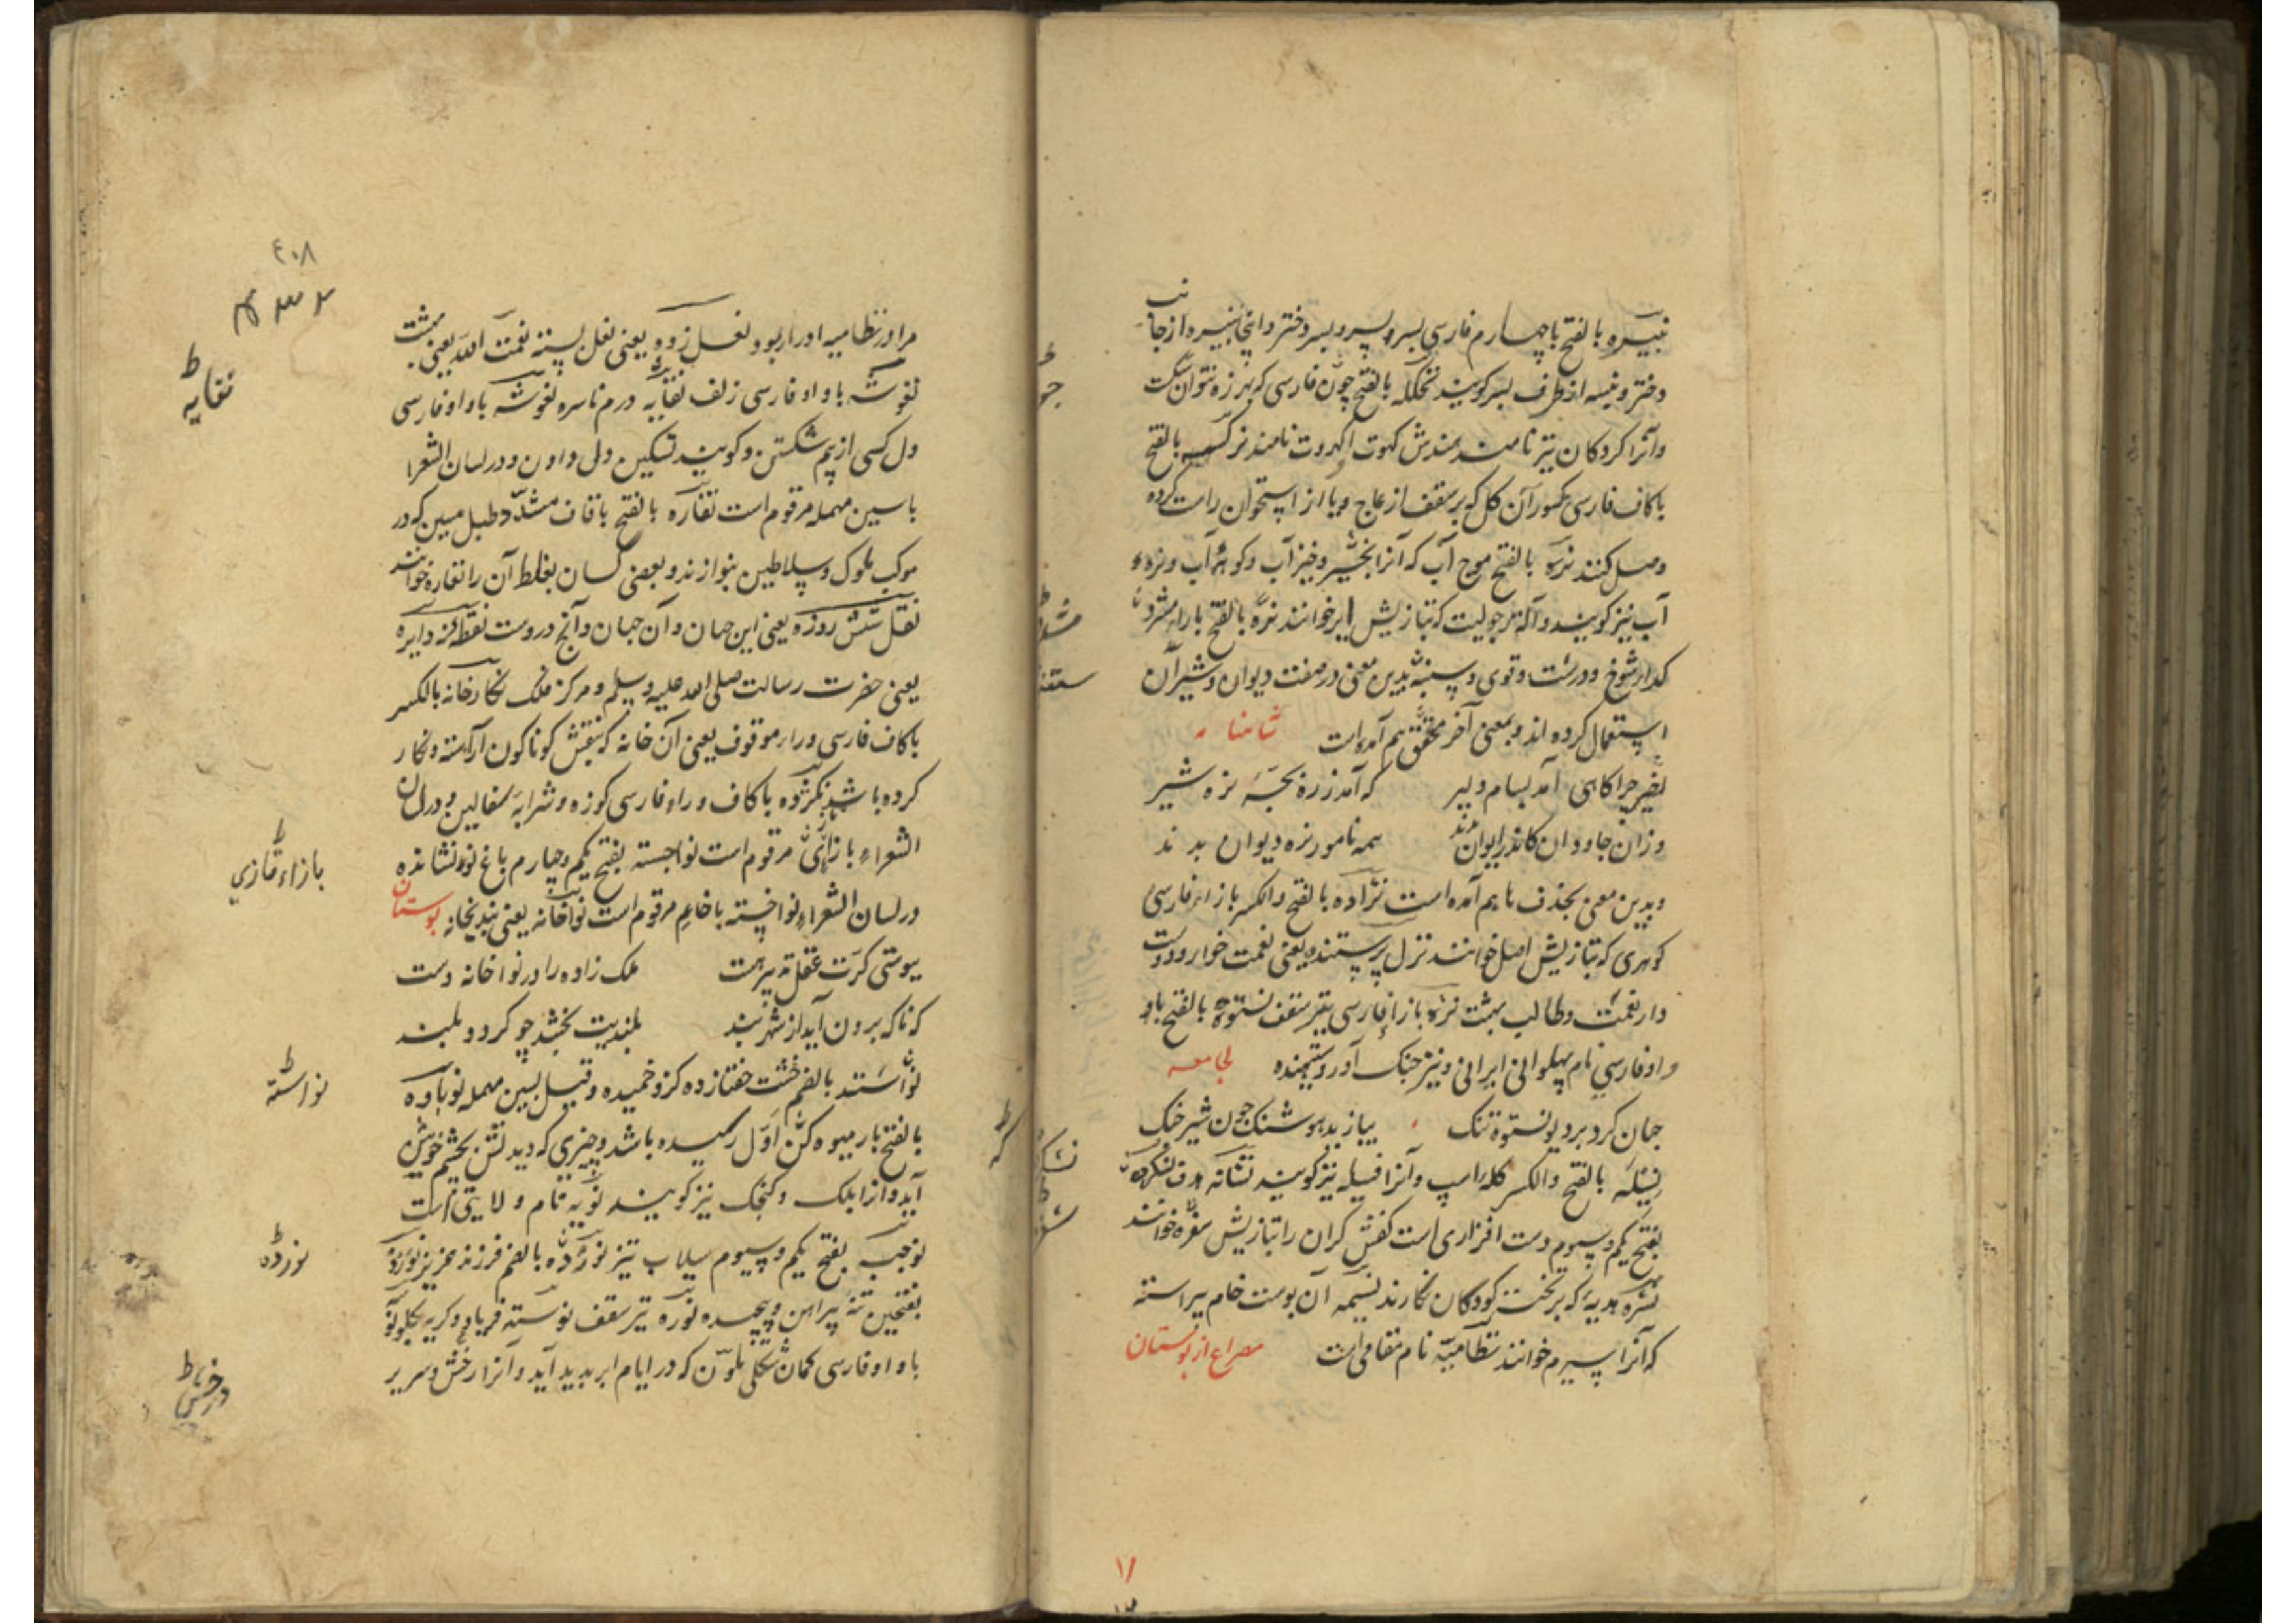 نبیره بالفتح باچهارم فارسی پسر و پسر و پسر دختر و اینجا نبیره از جانب
دختر و نبسه از طرف پسر گویند نخکله بالفتح چون فارسی که بهر زه نتوان شکست
وآنرا کردکان نیز نامند نرکسه بالفتح
باکاف فارسی مکسور آن کل که بر سقف از عاج و یا از استخوان راست کرده
وصل کنند نره بالفتح موج آب که آنرا وخیز آب و کوهه آب و نره
آب نیز گویند وآلة رجولیت که بتازیش ایر خوانند نره بالفتح باراء مشدد
کدا و شوخ و درشت و قوی و بدین معنی در صفت دیوان و شیران
استعمال کرده اند و بمعنی آخر مخفف هم آمده است شاهنامه
چراکاهی آمد بسام دلیر که آمد زره بچهٔ نره شیر
وزان جاودان کاندر ایوان بدند همه نامور نره دیوان بدند
و بدین معنی بحذف ها هم آمده است نژاده بالفتح والکسر بازاء فارسی
کوهری که بتازیش اصل خوانند نزل پرستنده یعنی نعمت خوار و دوست
دار نعمت و طالب بهشت نژه بازاء فارسی تیر سقف نستوه بالفتح باو
واو فارسی نام پهلوانی ایرانی و نیز جنک آور و ستیهنده لجامعه
جهان کرد بر دیو نستوه تنک بیازید هوشنک چون شیر چنک
بالفتح والکسر کله اسپ وآنرا فسیله نیز گویند نشانه هدف نشکرده
بفتح یکم و سیوم دست افزاری است کفش کران را بتازیش خوانند
نشره هدیه که بر تخته کودکان نکارند نشیمه آن پوست خام پیراسته
که آنرا سیرم خوانند نظامیه نام مقامی است مصراع از بوستان
۴۰۸
مرا در نظامیه ادرار بود نعل زده یعنی نعل بسته نعمت الله یعنی بهشت
نغوشه باواو فارسی زلف نفایه درم ناسره نغوشه باواو فارسی
نفایه
دل کسی از بیم شکستن و گویند تسکین دل دادن و در لسان الشعرا
باسین مهمله مرقوم است نقاره بالفتح باقاف مشدد طبل مسین که در
موکب ملوک و سلاطین بنوازند و بعضی کسان بغلط آن را نقاره خوانند
نقل شش روزه یعنی این جهان و آن جهان و آنچه دروست نقطه کز دایره
یعنی حضرت رسالت صلی الله علیه وسلم و مرکز فلک نکارخانه بالکسر
باکاف فارسی و راء موقوف یعنی آن خانه که بنقش کوناکون آراسته و نکار
کرده باشد نکژده باکاف و راء فارسی کوزه و شرابهٔ سفالین و در لسان
الشعراء بازای مرقوم است نواجسته بفتح یکم و چهارم باغ نو نشانده
بازاء تازی
در لسان الشعراء نواخسته باخاء مرقوم است نواخانه یعنی بندیخانه بوستان
بپوستی کرت عقل تدبیر هست ملک زاده را در نواخانه دست
که ناکه برون آید از شهربند بلندیت بخشد چو کردد بلند
بالضم خشت خفتانزده کژ و خمیده و قیل بسین مهمله نوباوه
نواسته
بالفتح بار میوه کز اول رسیده باشد و چیزی که دیدنش بچشم خوش
آید وانرا ابلک و کنجک نیز گویند نوبه نام ولایتی است
نوجبه بفتح یکم و سیوم سیلاب تیز نورده بالضم فرزند عزیز نورده
نورده
بفتحتین تنهٔ پیراهن و پیچیده نوره تیر سقف نوسته فریاد و کریه بکلو نو
باواو فارسی کمان شکلی ملون که در ایام ابر پدید آید و آنرا رخش و سریر